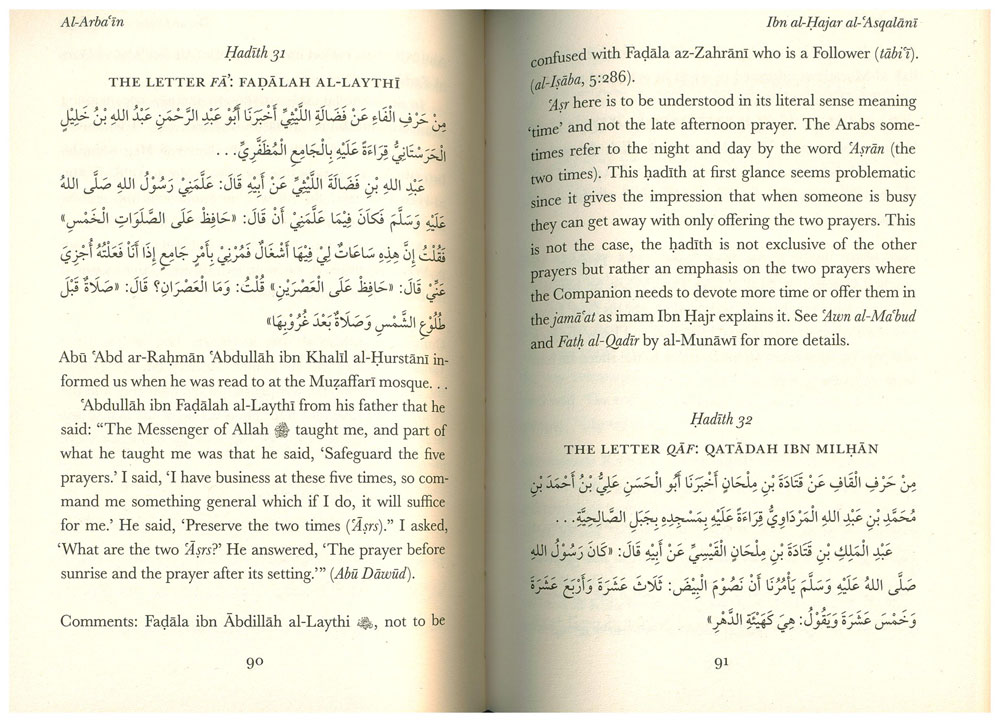 Al-Arbaʿīn
Ḥadīth 31
THE LETTER FĀʾ: FAḌĀLAH AL-LAYTHĪ
مِنْ حَرْفِ الْفَاءِ عَنْ فَضَالَةِ اللَّيْثِيِّ أَخْبَرَنَا أَبُو عَبْدِ الرَّحْمَنِ عَبْدُ اللهِ بْنُ خَلِيْلٍ
الْحَرَسْتَانِيُّ قِرَاءَةً عَلَيْهِ بِالْجَامِعِ الْمُظَفَّرِيِّ...
عَبْدِ اللهِ بْنِ فَضَالَةَ اللَّيْثِيِّ عَنْ أَبِيْهِ قَالَ: عَلَّمَنِيْ رَسُوْلُ اللهِ صَلَّى اللهُ
عَلَيْهِ وَسَلَّمَ فَكَانَ فِيْمَا عَلَّمَنِيْ أَنْ قَالَ: «حَافِظْ عَلَى الصَّلَوَاتِ الْخَمْسِ»
فَقُلْتُ إِنَّ هَذِهِ سَاعَاتٌ لِيْ فِيْهَا أَشْغَالٌ فَمُرْنِيْ بِأَمْرٍ جَامِعٍ إِذَا أَنَا فَعَلْتُهُ أُجْزِيَ
عَنِّيْ قَالَ: «حَافِظْ عَلَى الْعَصْرَيْنِ» قُلْتُ: وَمَا الْعَصْرَانِ؟ قَالَ: «صَلَاةٌ قَبْلَ
طُلُوْعِ الشَّمْسِ وَصَلَاةٌ بَعْدَ غُرُوْبِهَا»
Abū ʿAbd ar-Raḥmān ʿAbdullāh ibn Khalīl al-Ḥurstānī in-
formed us when he was read to at the Muẓaffarī mosque...
ʿAbdullāh ibn Faḍālah al-Laythī from his father that he
said: “The Messenger of Allah ﷺ taught me, and part of
what he taught me was that he said, ‘Safeguard the five
prayers.’ I said, ‘I have business at these five times, so com-
mand me something general which if I do, it will suffice
for me.’ He said, ‘Preserve the two times (ʿĀṣrs).” I asked,
‘What are the two ʿĀṣrs?’ He answered, ‘The prayer before
sunrise and the prayer after its setting.’” (Abū Dāwūd).
Comments: Faḍāla ibn Ābdillāh al-Laythi , not to be
90
Ibn al-Ḥajar al-ʿAsqalānī
confused with Faḍāla az-Zahrānī who is a Follower (tābiʿī).
(al-Iṣāba, 5:286).
ʿAṣr here is to be understood in its literal sense meaning
‘time’ and not the late afternoon prayer. The Arabs some-
times refer to the night and day by the word ʿAṣrān (the
two times). This ḥadīth at first glance seems problematic
since it gives the impression that when someone is busy
they can get away with only offering the two prayers. This
is not the case, the ḥadīth is not exclusive of the other
prayers but rather an emphasis on the two prayers where
the Companion needs to devote more time or offer them in
the jamāʿat as imam Ibn Ḥajr explains it. See ʿAwn al-Maʿbud
and Fatḥ al-Qadīr by al-Munāwī for more details.
Ḥadīth 32
THE LETTER QĀF: QATĀDAH IBN MILḤĀN
مِنْ حَرْفِ الْقَافِ عَنْ قَتَادَةَ بْنِ مِلْحَانِ أَخْبَرَنَا أَبُو الْحَسَنِ عَلِيُّ بْنُ أَحْمَدَ بْنِ
مُحَمَّدِ بْنِ عَبْدِ اللهِ الْمَرْدَاوِيُّ قِرَاءَةً عَلَيْهِ بِمَسْجِدِهِ بِجَبَلِ الصَّالِحِيَّةِ...
عَبْدِ الْمَلِكِ بْنِ قَتَادَةَ بْنِ مِلْحَانِ الْقَيْسِيِّ عَنْ أَبِيْهِ قَالَ: «كَانَ رَسُوْلُ اللهِ
صَلَّى اللهُ عَلَيْهِ وَسَلَّمَ يَأْمُرُنَا أَنْ نَصُوْمَ الْبِيْضَ: ثَلَاثَ عَشْرَةَ وَأَرْبَعَ عَشْرَةَ
وَخَمْسَ عَشْرَةَ وَيَقُوْلُ: هِيَ كَهَيْئَةِ الدَّهْرِ»
91